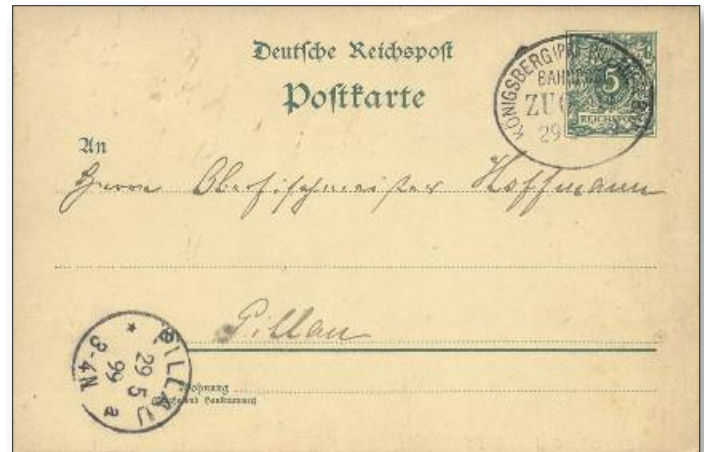 Deutsche Reichspost
Postkarte
KÖNIGSBERG (PR)
BAHNPOST
ZUG
29
5
REICHSPOST
An
Herrn Oberfischmeister Hoffmann
Pillau
PILLAU
29 5
99
3-4N
a
Wohnung
(Straße und Hausnummer)